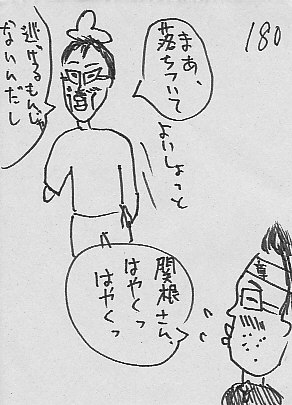 180
まあ、
落ちついて
よいしょっと
逃げるもんじゃ
ないんだし
関根さん、
はやくっ
はやくっ